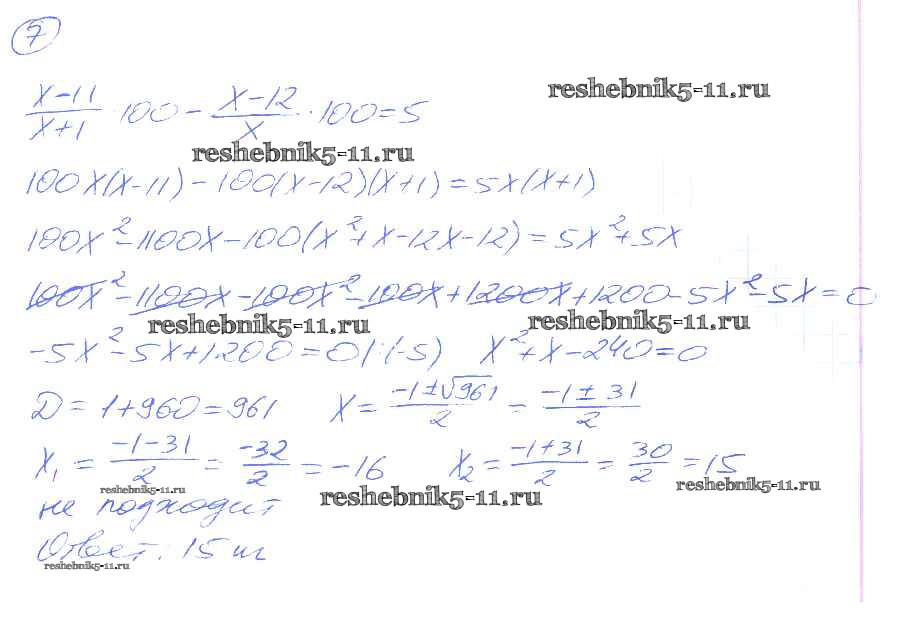 7
(x-11)/(x+1) · 100 - (x-12)/x · 100 = 5
reshebnik5-11.ru
reshebnik5-11.ru
100x(x-11) - 100(x-12)(x+1) = 5x(x+1)
100x² - 1100x - 100(x² + x - 12x - 12) = 5x² + 5x
100x² - 1100x - 100x² - 100x + 1200x + 1200 - 5x² - 5x = 0
reshebnik5-11.ru reshebnik5-11.ru
-5x² - 5x + 1200 = 0 | :(-5) x² + x - 240 = 0
Д = 1 + 960 = 961 x = (-1 ± √961)/2 = (-1 ± 31)/2
x₁ = (-1-31)/2 = -32/2 = -16 x₂ = (-1+31)/2 = 30/2 = 15
reshebnik5-11.ru reshebnik5-11.ru reshebnik5-11.ru
не подходит
Ответ: 15 ш
reshebnik5-11.ru